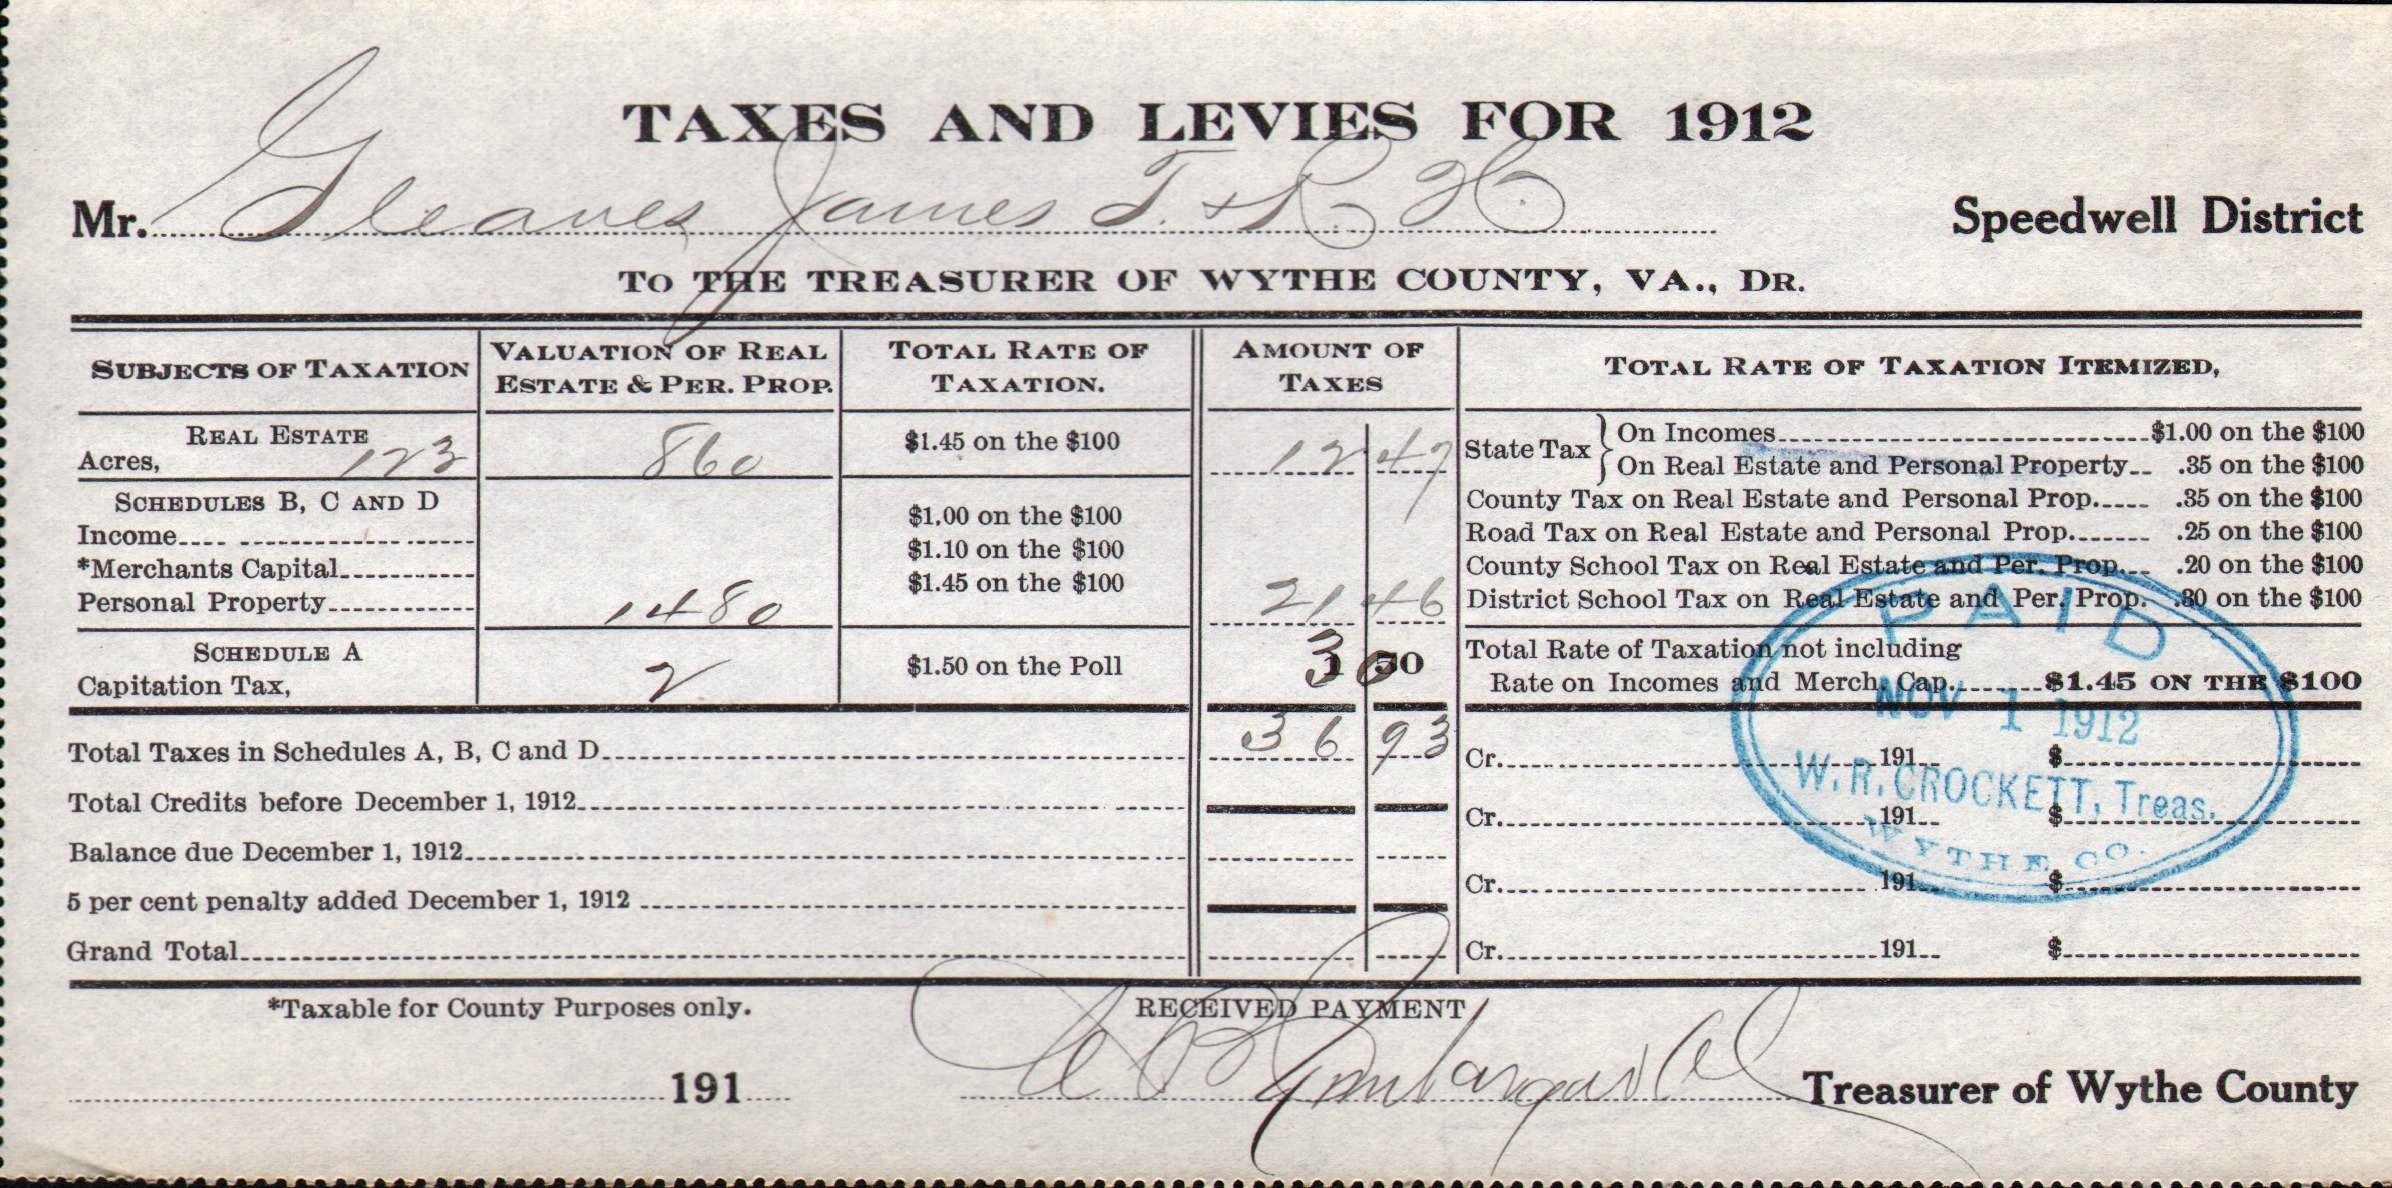 TAXES AND LEVIES FOR 1912
Mr. Gleaves James T. & R. H. Speedwell District
TO THE TREASURER OF WYTHE COUNTY, VA., DR.
SUBJECTS OF TAXATION
VALUATION OF REAL
ESTATE & PER. PROP.
TOTAL RATE OF
TAXATION.
AMOUNT OF
TAXES
TOTAL RATE OF TAXATION ITEMIZED,
REAL ESTATE
Acres, 123 860 $1.45 on the $100 12 47
SCHEDULES B, C AND D
Income $1.00 on the $100
*Merchants Capital $1.10 on the $100
Personal Property 1480 $1.45 on the $100 21 46
SCHEDULE A
Capitation Tax, 2 $1.50 on the Poll 1 50
3 0
State Tax
On Incomes $1.00 on the $100
On Real Estate and Personal Property .35 on the $100
County Tax on Real Estate and Personal Prop. .35 on the $100
Road Tax on Real Estate and Personal Prop. .25 on the $100
County School Tax on Real Estate and Per. Prop. .20 on the $100
District School Tax on Real Estate and Per. Prop. .30 on the $100
Total Rate of Taxation not including
Rate on Incomes and Merch. Cap. $1.45 ON THE $100
Total Taxes in Schedules A, B, C and D 36 93
Total Credits before December 1, 1912
Balance due December 1, 1912
5 per cent penalty added December 1, 1912
Grand Total
Cr. 191 $
Cr. 191 $
Cr. 191 $
Cr. 191 $
PAID
NOV 1 1912
W. R. CROCKETT, Treas.
WYTHE CO.
*Taxable for County Purposes only.
RECEIVED PAYMENT
191
Treasurer of Wythe County